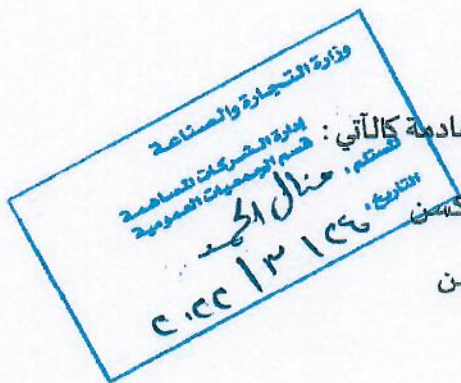 ادمة كالآتي :
وزارة التجارة والصناعة
إدارة الشركات المساهمة
قسم الجمعيات العمومية
المستلم: منال الحمد
التاريخ: ٢٠٢٢/٣/٢٤
كسن
ن